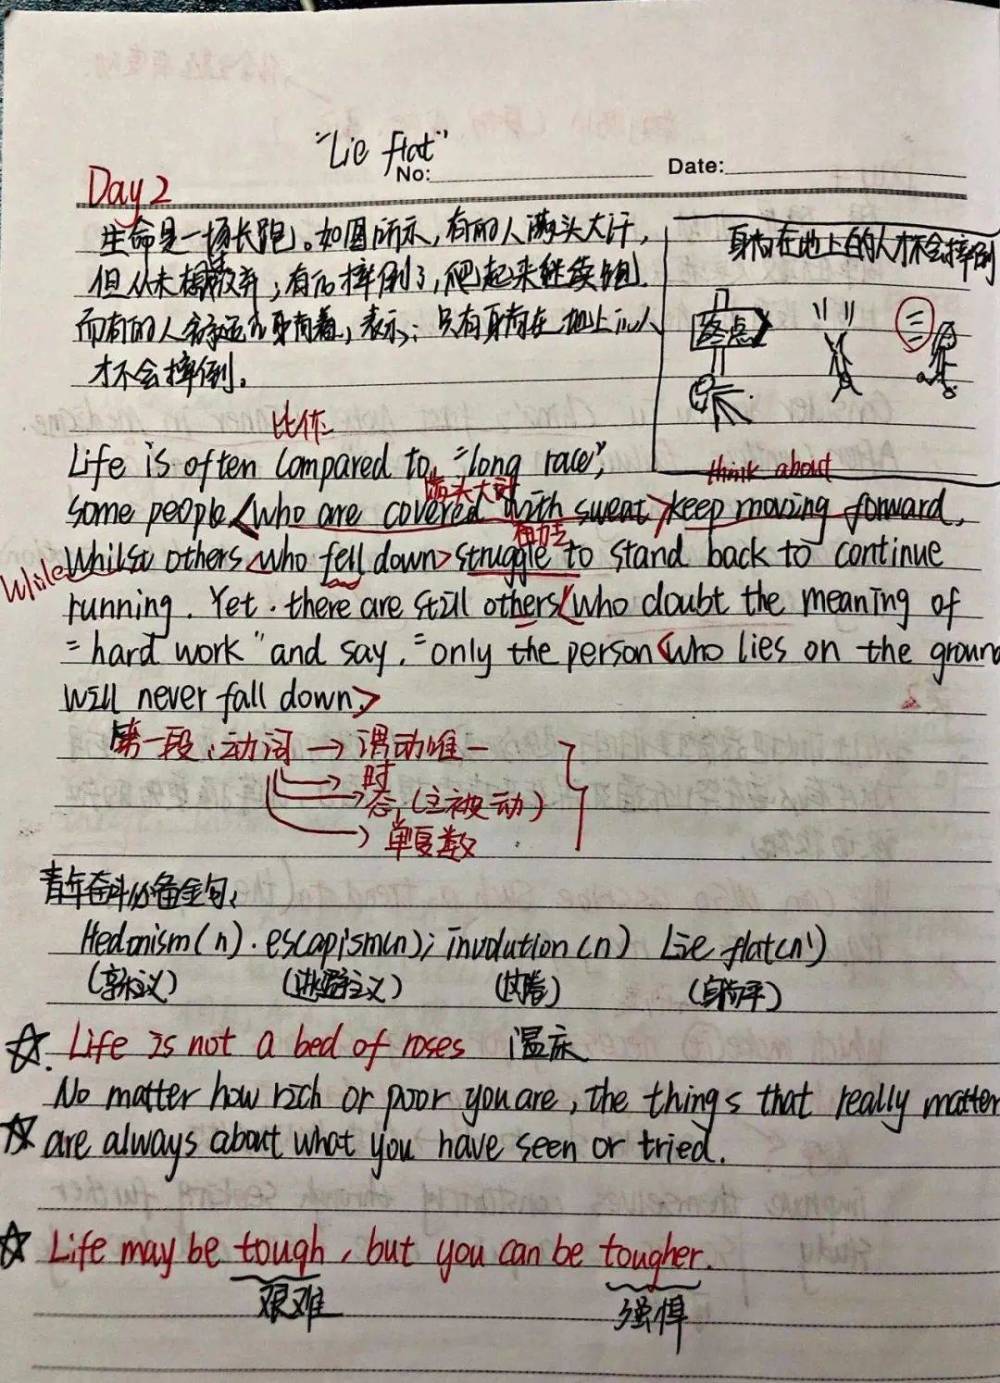 "Lie flat"
No:
Date:
Day 2
生命是一场长跑。如图所示,有的人满头大汗,
但从未想放弃,有的摔倒了,爬起来继续跑.
而有的人永远在身躺着,表示:只有身躺在地上的人
才不会摔倒。
身躺在地上的人才不会摔倒
终点
比作
Life is often compared to "long race",
满头大汗
think about
some people <who are covered with sweat> keep moving forward,
挣扎去
While
Whilst others <who fell down> struggle to stand back to continue
running. Yet. there are still others <who doubt the meaning of
"hard work" and say. "only the person <who lies on the ground
will never fall down>
第一段:动词→谓动唯一
→时
→态,(主被动)
→单复数
青年奋斗必备金句:
Hedonism(n). escapism(n); involution(n) Lie flat(n)
(享乐主义) (逃避主义) (内卷) (身躺平)
☆. Life is not a bed of roses 温床
No matter how rich or poor you are, the things that really matter
☆ are always about what you have seen or tried.
☆ Life may be tough, but you can be tougher.
艰难 强悍